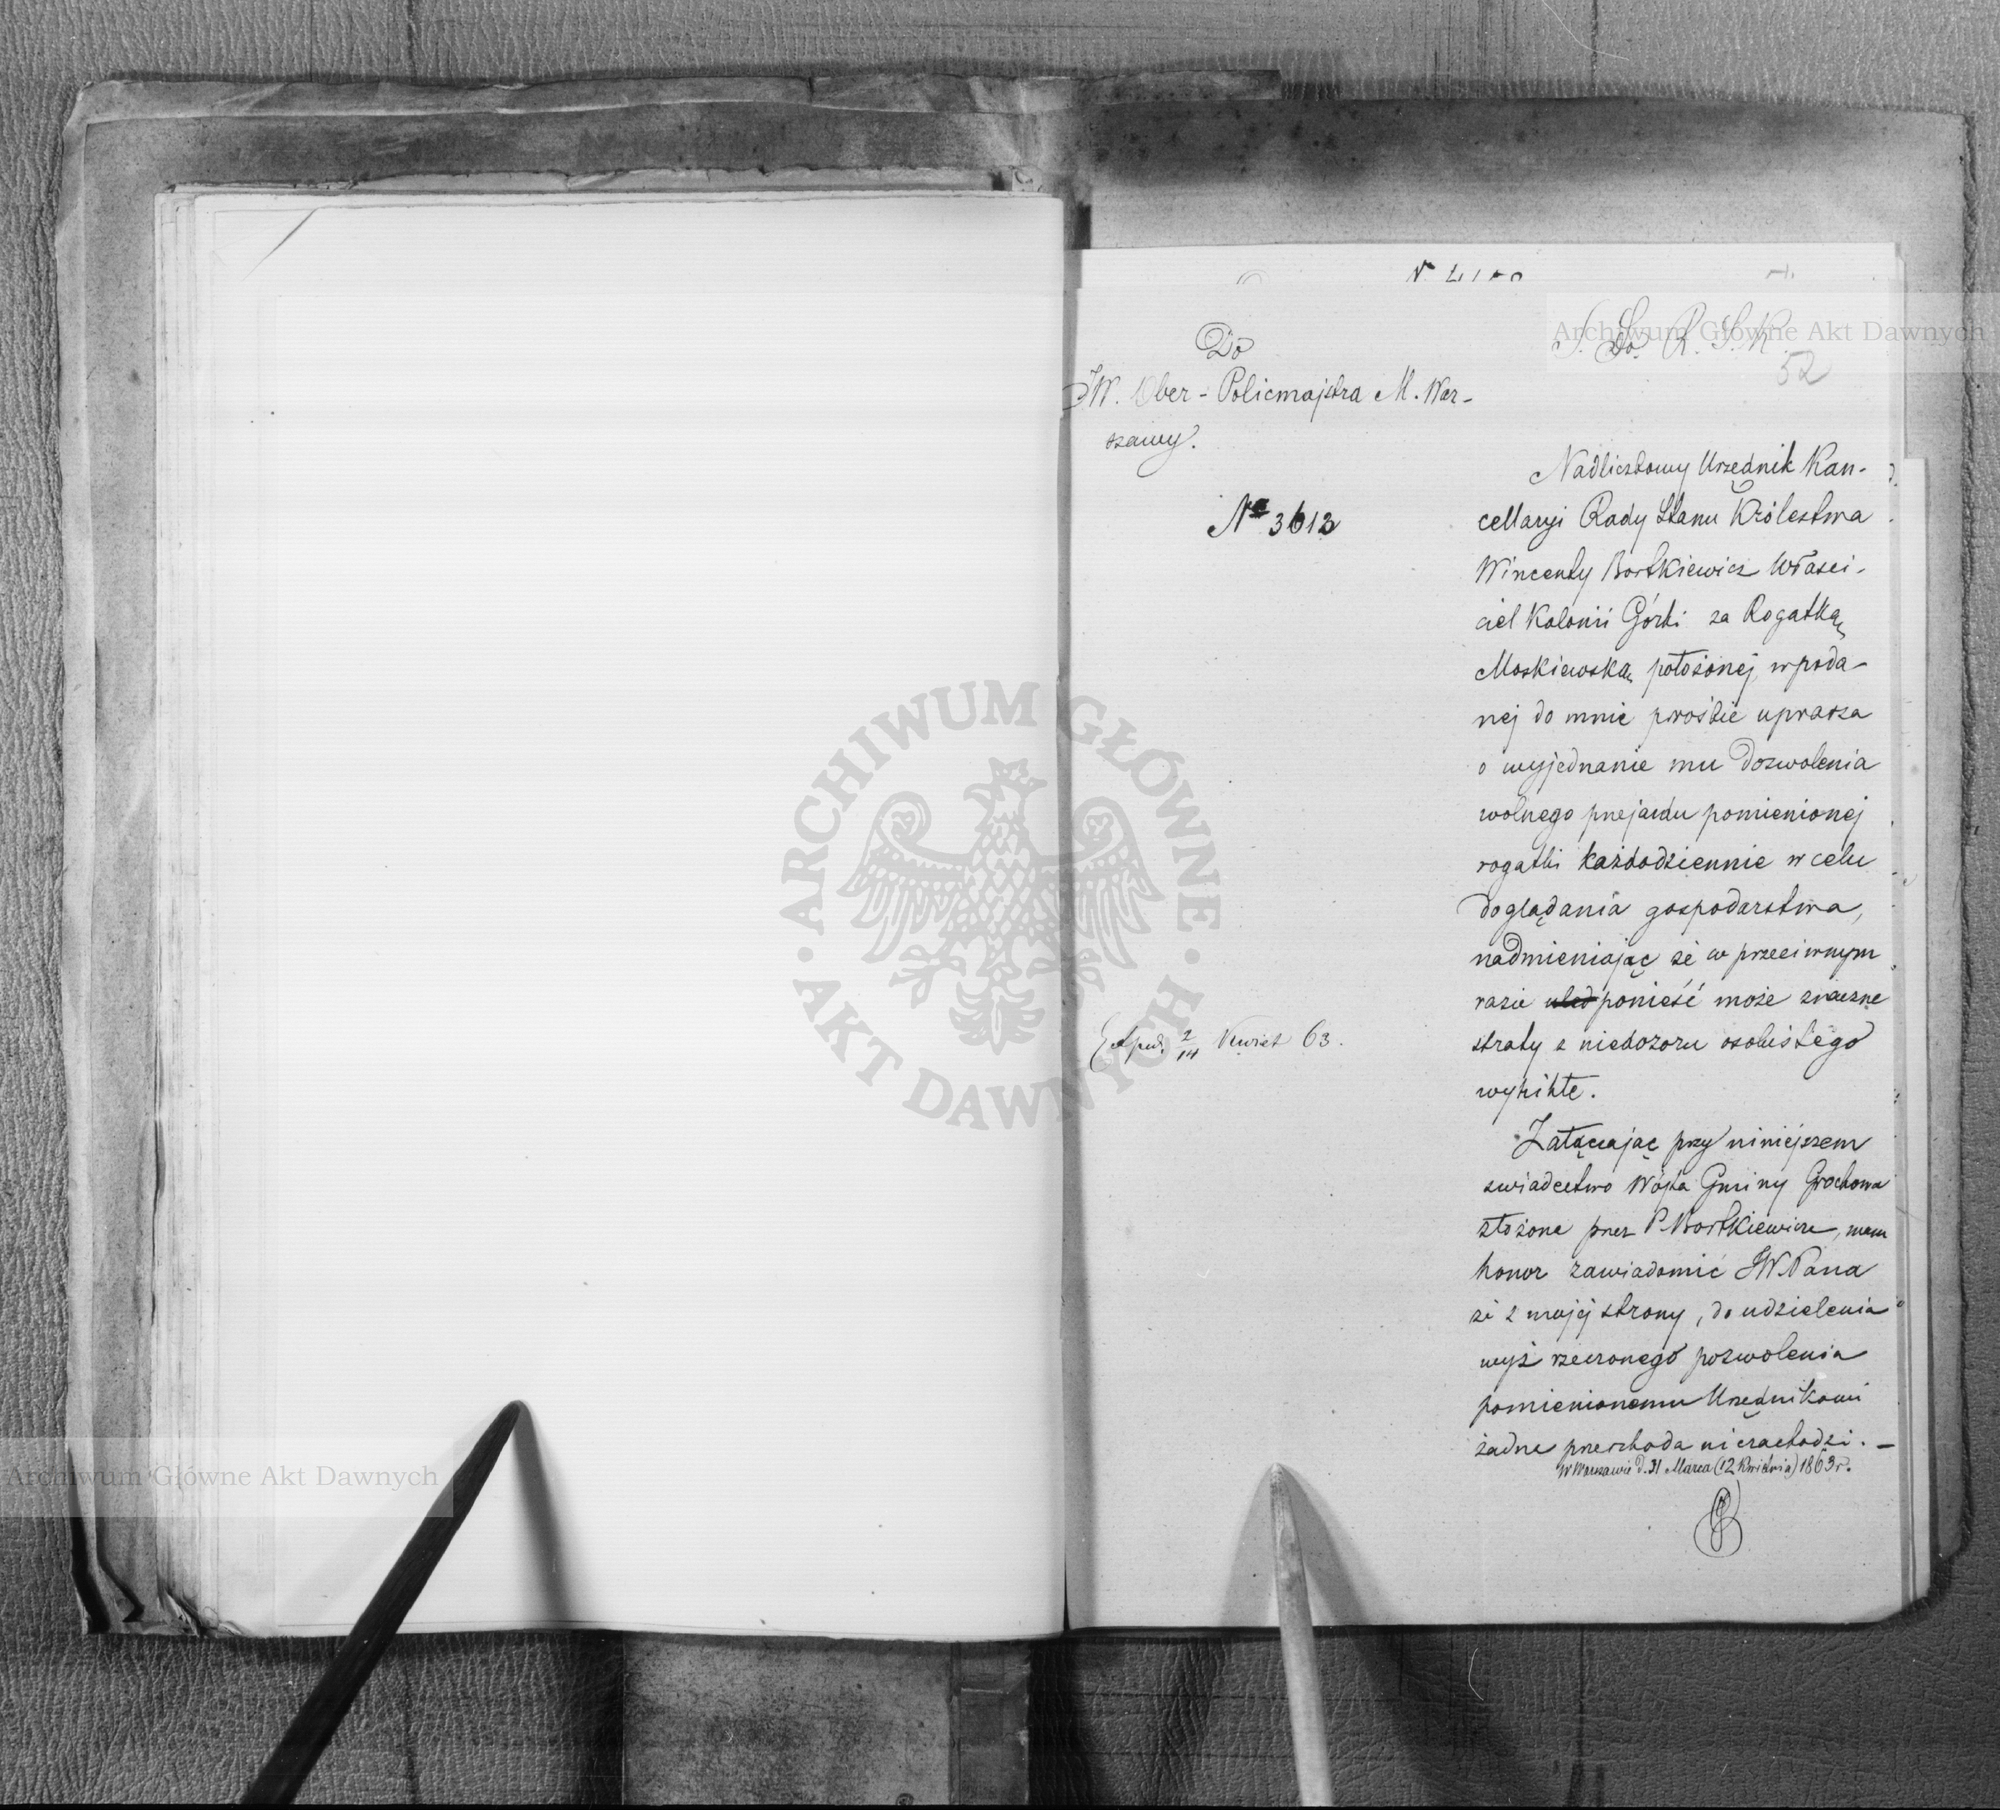 S. Do. R. S. K.
52
Do
JW. Ober-Policmajstra M. War-
szawy.
No 3613
Nadliczbowy Urzędnik Kan-
cellaryi Rady Stanu Królestwa
Wincenty Bortkiewicz Właści-
ciel Kolonii Górki za Rogatką
Moskiewską położonej, w poda-
nej do mnie prośbie uprasza
o wyjednanie mu dozwolenia
wolnego przejazdu pomienionej
rogatki każdodziennie w celu
doglądania gospodarstwa,
nadmieniając że w przeciwnym
razie ponieść może znaczne
straty z niedozoru osobistego
wynikłe.
Exped. 2/14 Kwiet 63.
Załączając przy niniejszem
swiadectwo Wójta Gminy Grochowa
złożone przez P. Bortkiewicza, mam
honor zawiadomić JW. Pana
że z mojej strony, do udzielenia
wyż rzeczonego pozwolenia
pomienionemu Urzędnikowi
żadna przeszkoda niezachodzi. —
W Warszawie d. 31 Marca (12 Kwietnia) 1863 r.
ARCHIWUM GŁÓWNE
AKT DAWNYCH
Archiwum Główne Akt Dawnych
Archiwum Główne Akt Dawnych